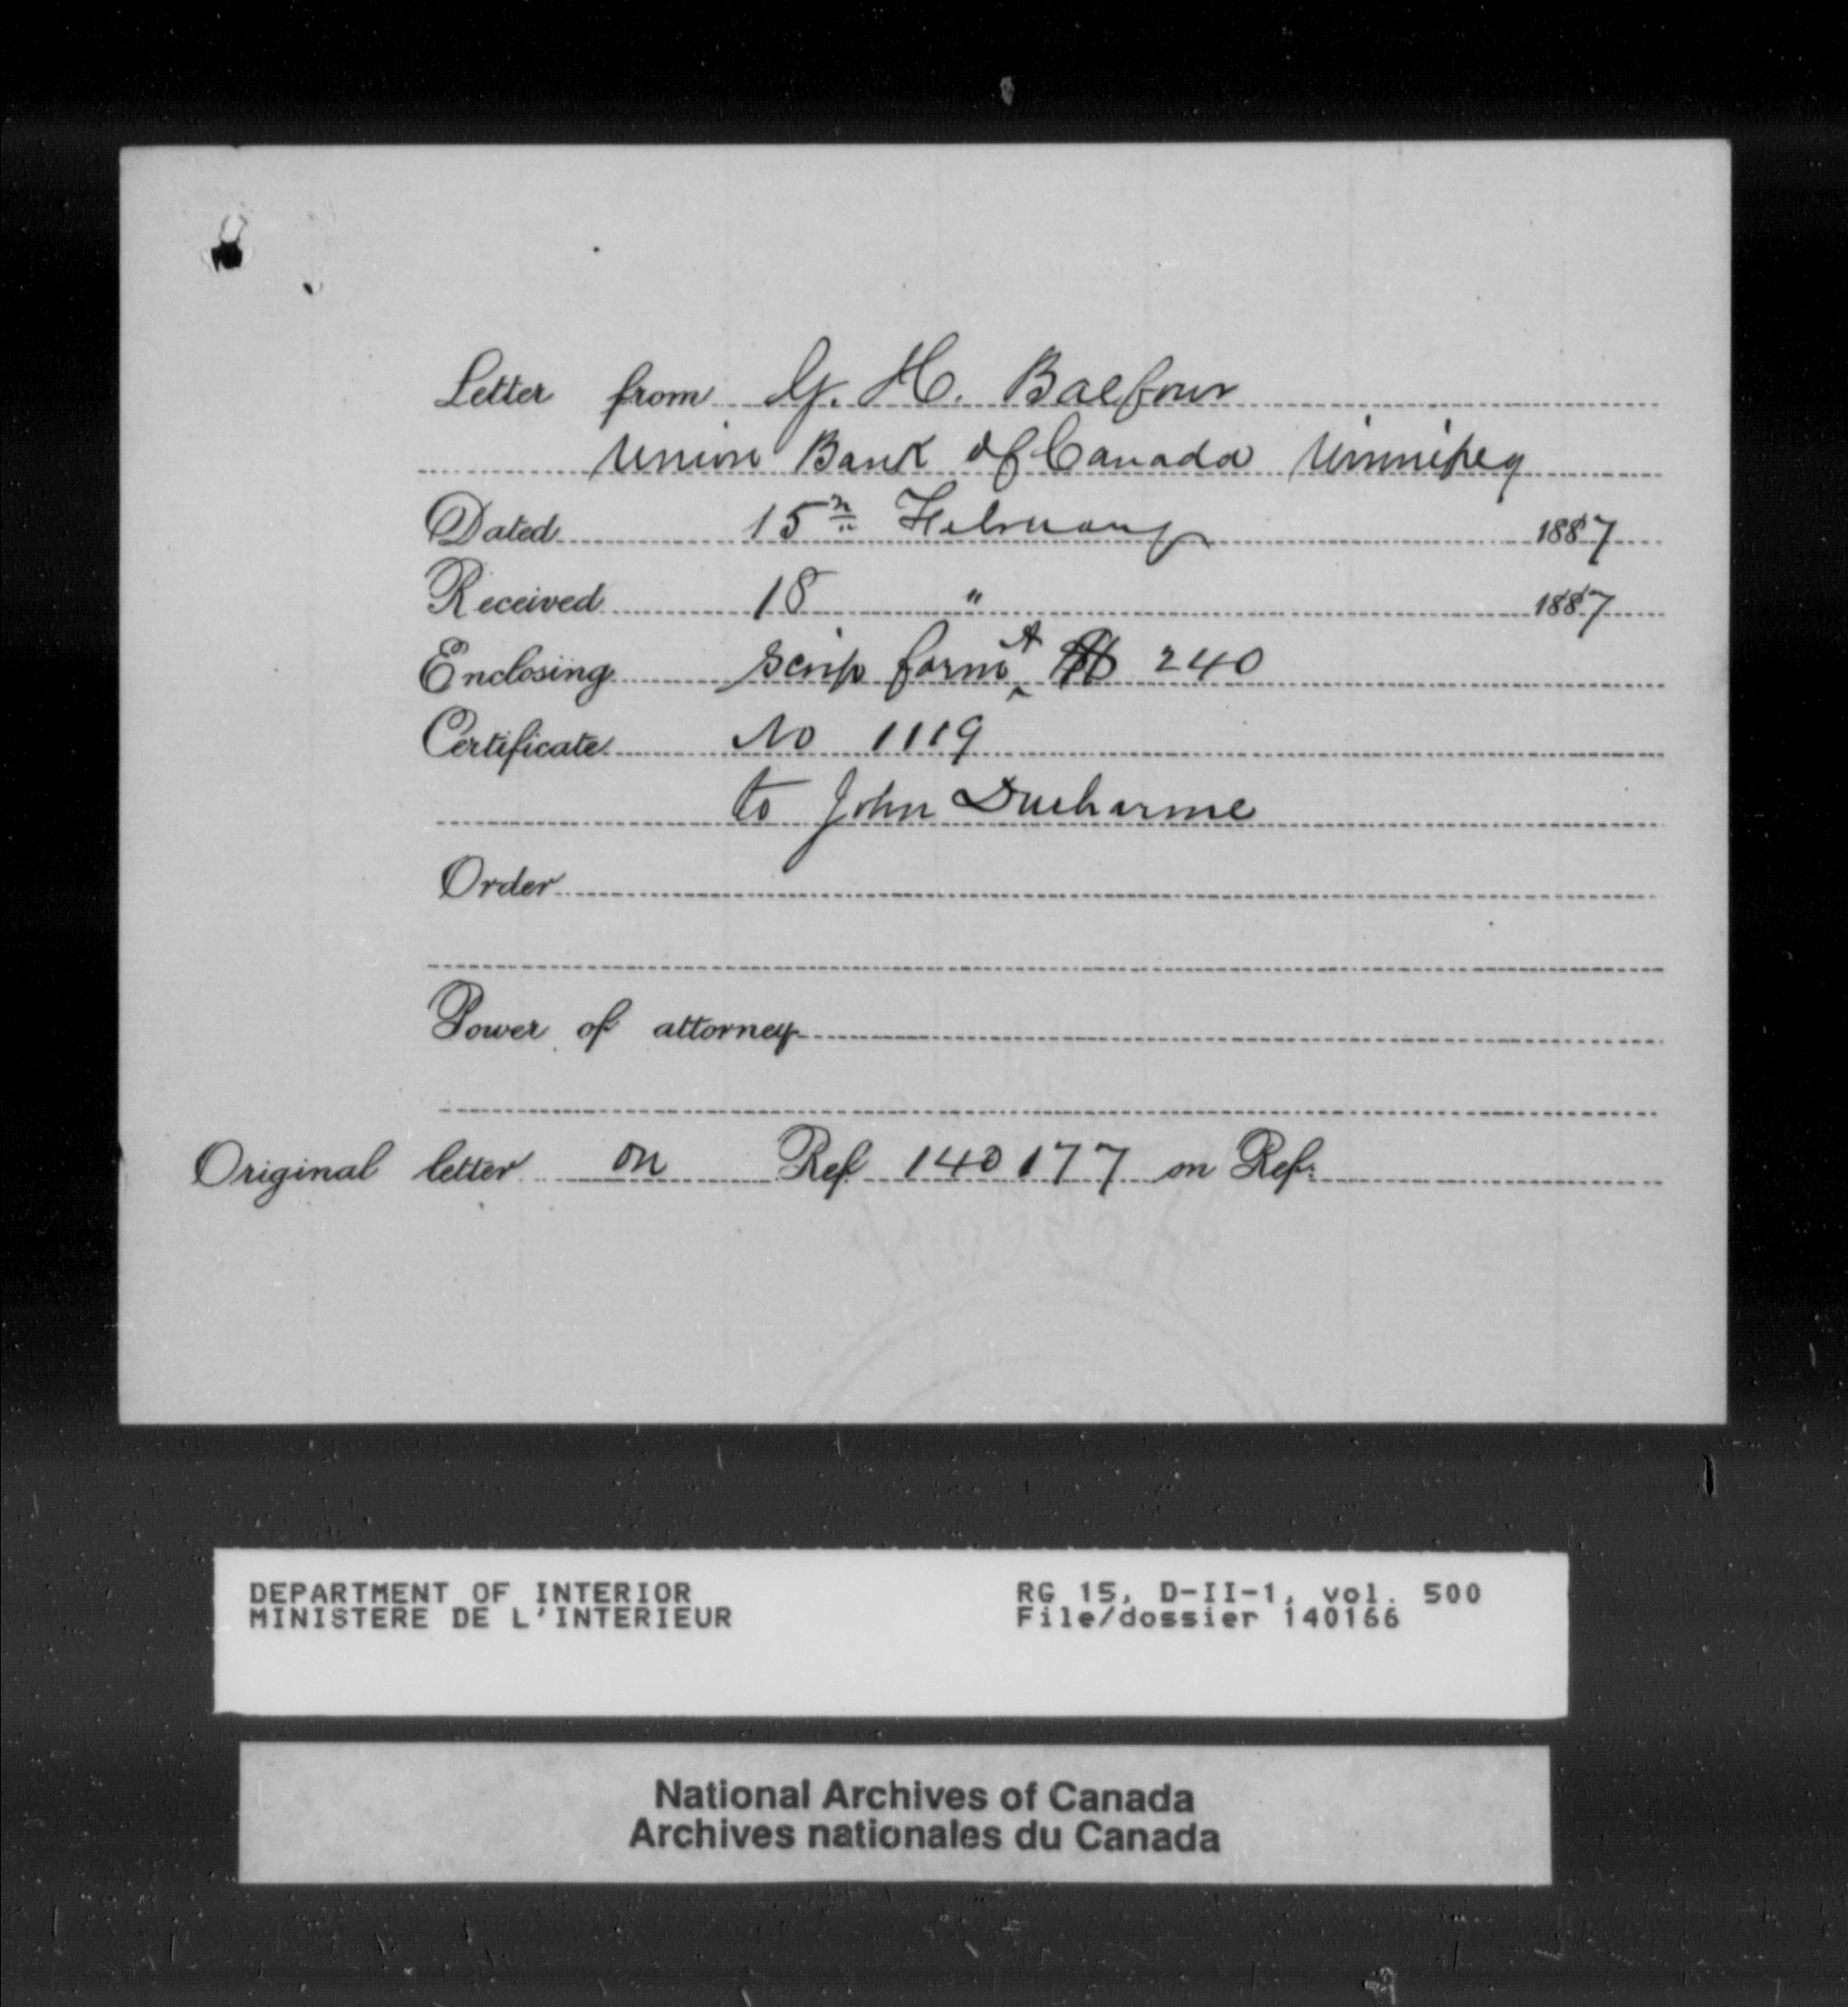 Letter from G. H. Balfour
Union Bank of Canada Winnipeg
Dated 15th February 1887
Received 18 " 1887
Enclosing Scrip form A 240
Certificate No 1119
to John Ducharme
Order
Power of attorney
Original letter on Ref 140177 on Ref:
DEPARTMENT OF INTERIOR
MINISTERE DE L'INTERIEUR
RG 15, D-II-1, vol. 500
File/dossier 140166
National Archives of Canada
Archives nationales du Canada